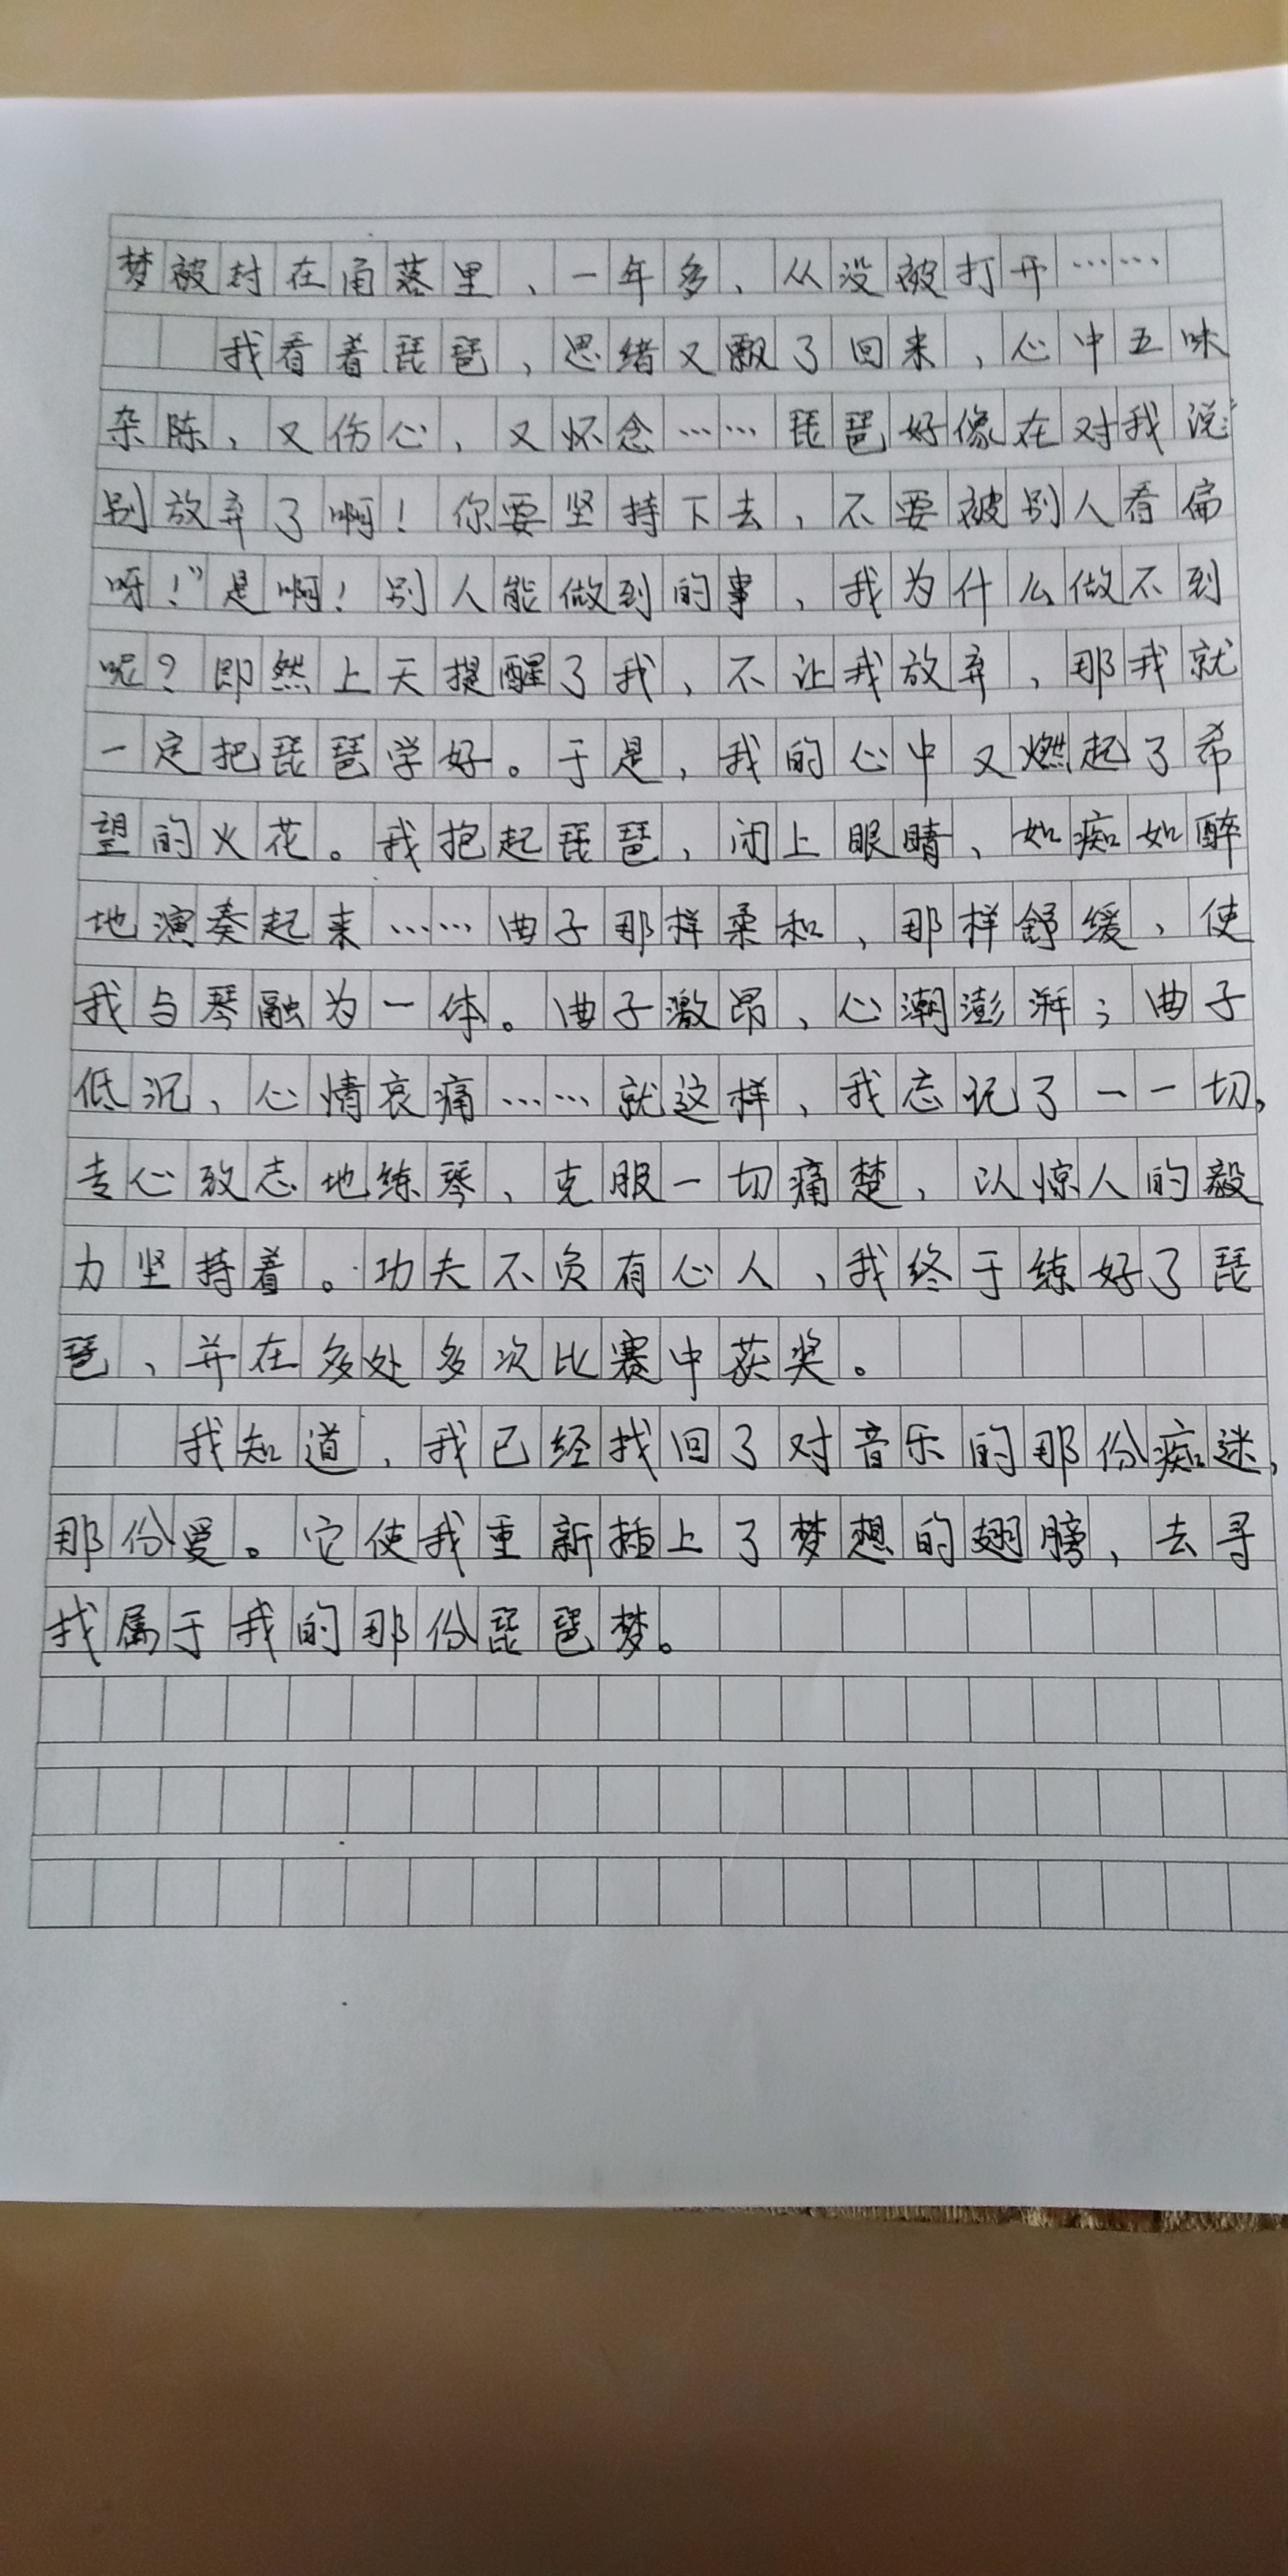 梦被封在角落里，一年多，从没被打开……
我看着琵琶，思绪又飘了回来，心中五味
杂陈，又伤心，又怀念……琵琶好像在对我说：“
别放弃了啊！你要坚持下去，不要被别人看扁
呀！”是啊！别人能做到的事，我为什么做不到
呢？即然上天提醒了我，不让我放弃，那我就
一定把琵琶学好。于是，我的心中又燃起了希
望的火花。我抱起琵琶，闭上眼睛，如痴如醉
地演奏起来……曲子那样柔和，那样舒缓，使
我与琴融为一体。曲子激昂，心潮澎湃；曲子
低沉，心情哀痛……就这样，我忘记了一一切，
专心致志地练琴，克服一切痛楚，以惊人的毅
力坚持着。功夫不负有心人，我终于练好了琵
琶，并在多处多次比赛中获奖。
我知道，我已经找回了对音乐的那份痴迷，
那份爱。它使我重新插上了梦想的翅膀，去寻
找属于我的那份琵琶梦。